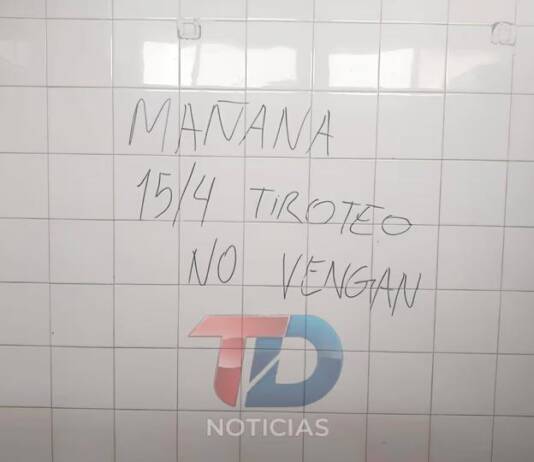 MAÑANA
15/4 TIROTEO
NO VENGAN
TD
NOTICIAS